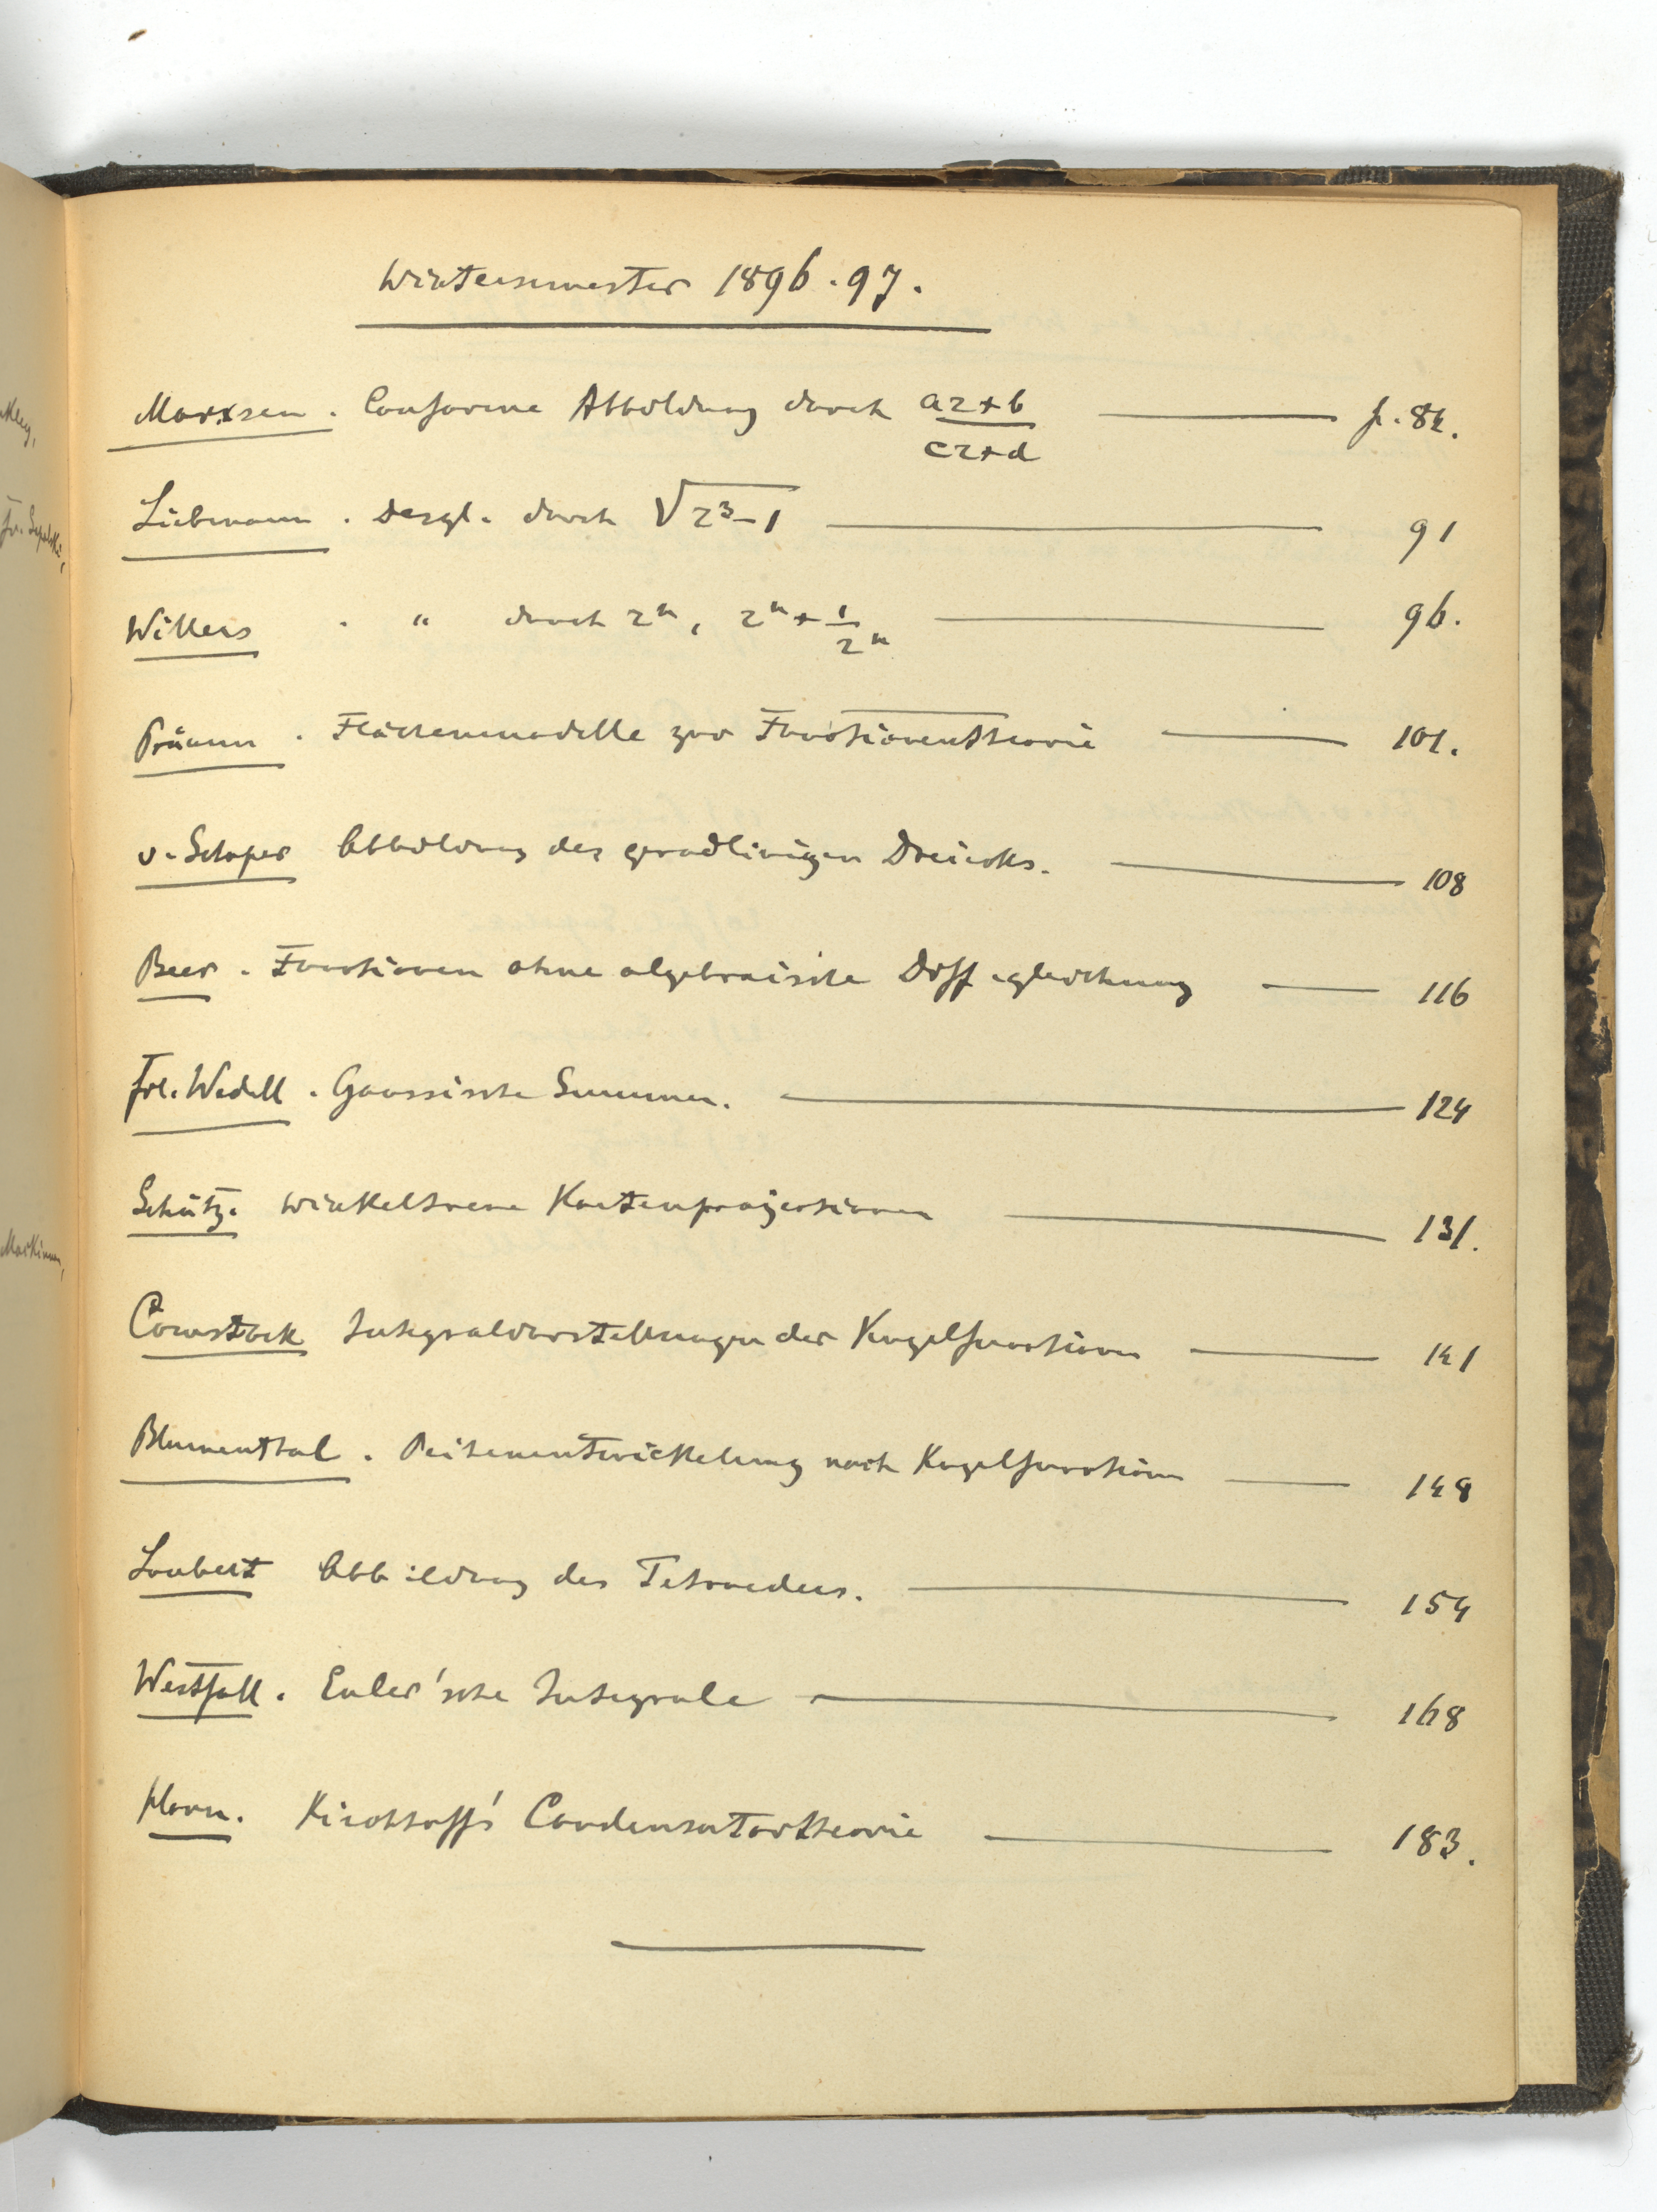 Wintersemester 1896.97.
Marxsen. Conforme Abbildung durch az+b / cz+d p. 84.
Liebmann. Desgl. durch √z³-1 91
Willers . " durch zⁿ, zⁿ+1/zⁿ 96.
Prümm. Flächenmodelle zur Functionentheorie 101.
v. Schaper Abbildung des gradlinigen Dreiecks. 108
Beer. Functionen ohne algebraische Diff.gleichung 116
Frl. Wedell. Gaussische Summen. 124
Schütz. Winkeltreue Kartenprojectionen 131.
Comstock Integraldarstellungen der Kugelfunctionen 141
Blumenthal. Reihenentwickelung nach Kugelfunctionen 148
Loubert Abbildung des Tetraeders. 154
Westfall. Euler'sche Integrale 168
Horn. Kirchhoff's Condensatortheorie 183.